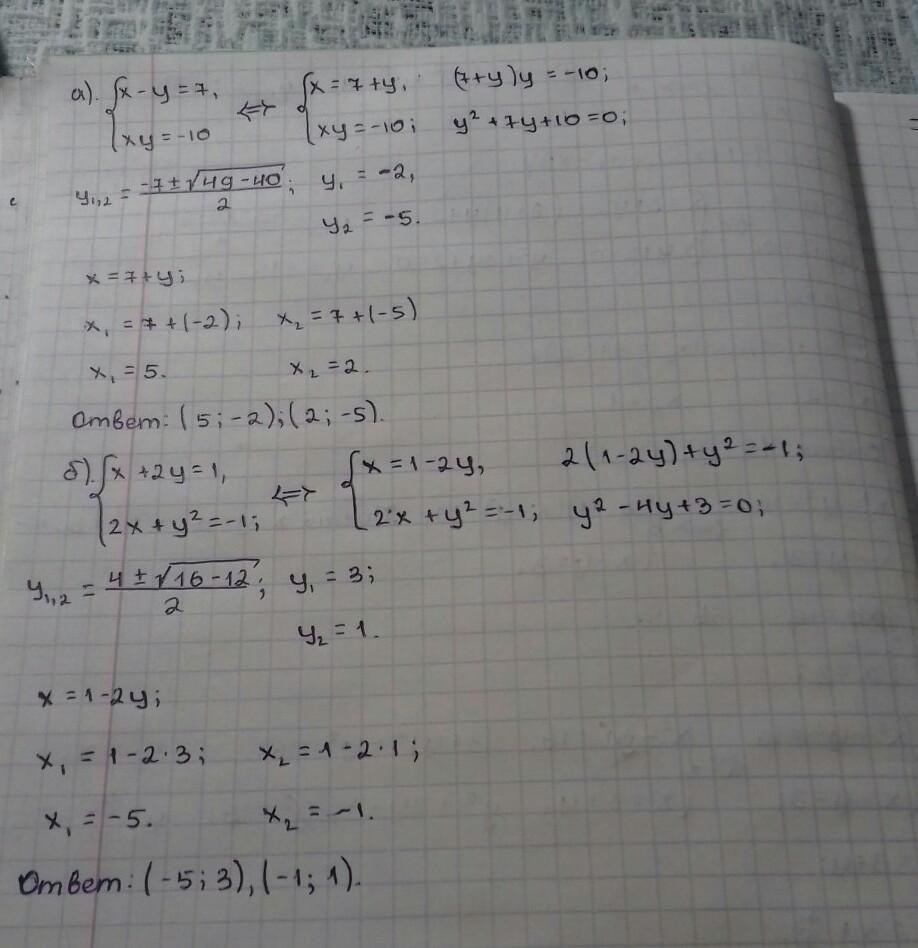 а). {x - y = 7, <=> {x = 7+y, (7+y)y = -10;
xy = -10 xy = -10; y² + 7y + 10 = 0;
y₁,₂ = (-7 ± √49 - 40)/2; y₁ = -2,
y₂ = -5.
x = 7+y;
x₁ = 7+(-2); x₂ = 7+(-5)
x₁ = 5. x₂ = 2.
Ответ: (5; -2); (2; -5).
б). {x + 2y = 1, <=> {x = 1 - 2y, 2(1-2y)+y² = -1;
2x + y² = -1; 2·x + y² = -1; y² - 4y + 3 = 0;
y₁,₂ = (4 ± √16 - 12)/2; y₁ = 3;
y₂ = 1.
x = 1 - 2y;
x₁ = 1 - 2·3; x₂ = 1 - 2·1;
x₁ = -5. x₂ = -1.
Ответ: (-5; 3), (-1; 1).